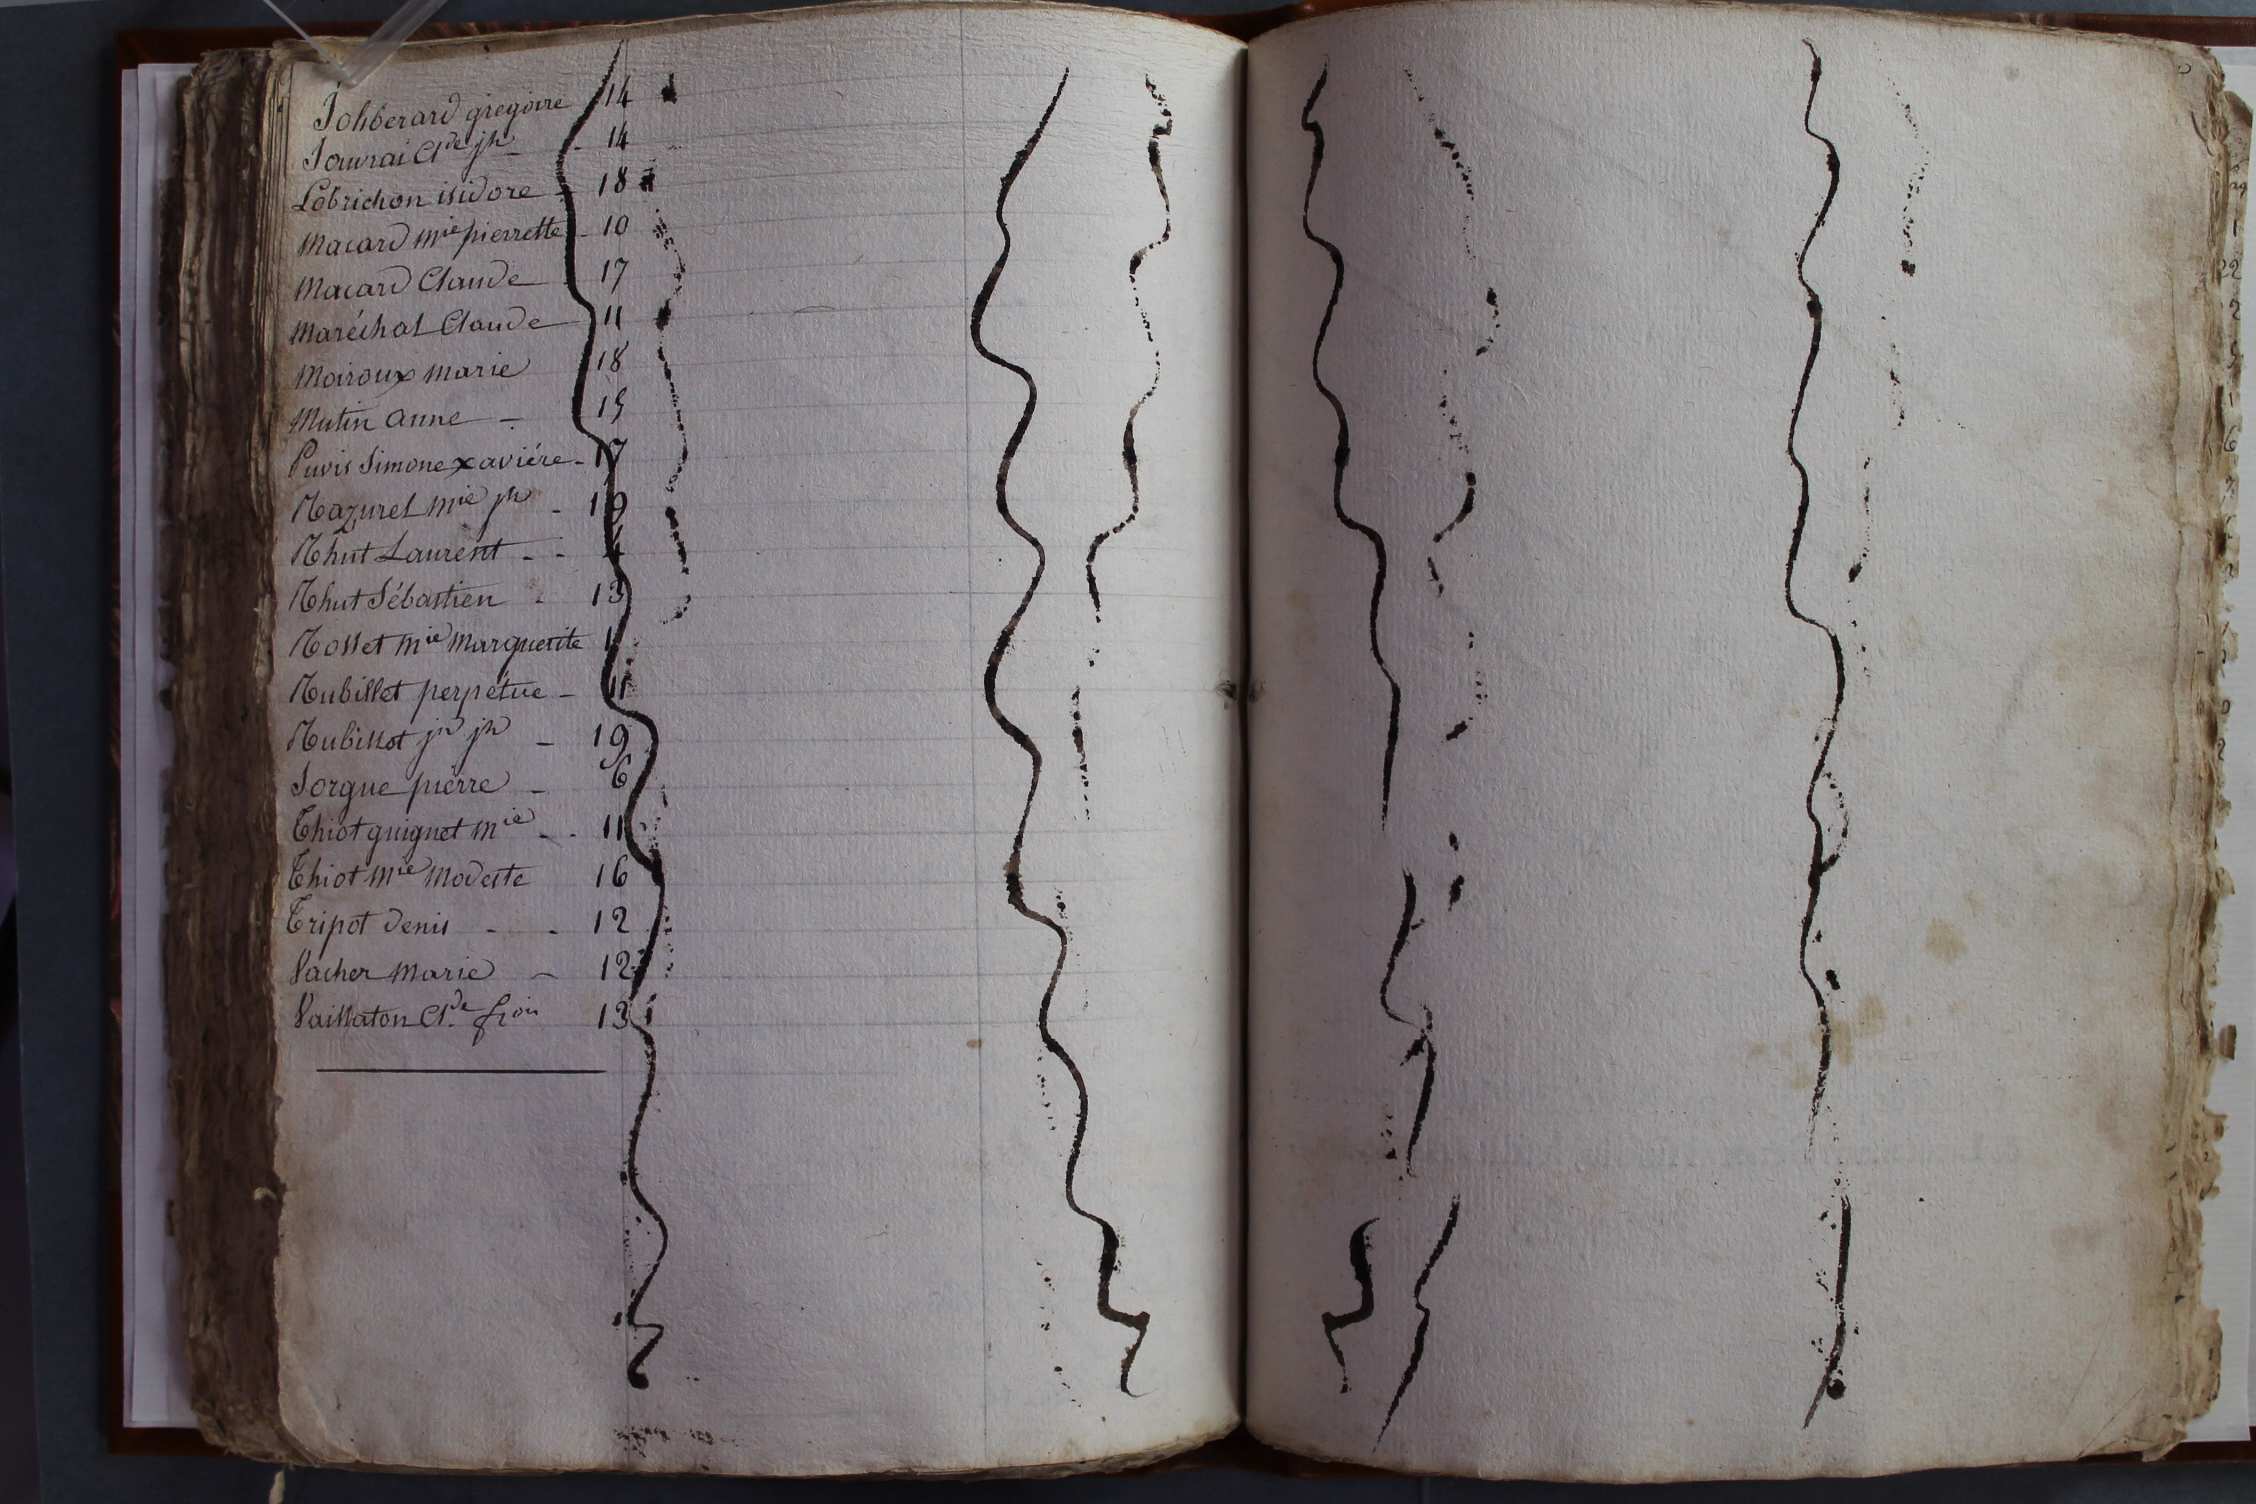 Johberard gregoire 14
Jauvrai Cl.de jh - 14
Lobrichon isidore - 18
Macard mie pierrette - 10
Macard Claude 17
Maréchal Claude 11
Moiroux marie 18
Mutin anne - 15
Puvis Simone xaviére - 17
Razurel mie jh - 19
Rhut Laurent - -
Rhut Sébastien - 13
Rosset mie Marguerite
Rubillet perpétue - 11
Rubillot jn jh - 19
Sorgue pierre - 6
Thiot guignet mie - - 11
Thiot mie Modeste 16
Tripot denis - - 12
Vacher Marie - 12
Vaillaton Cl.de frois 13